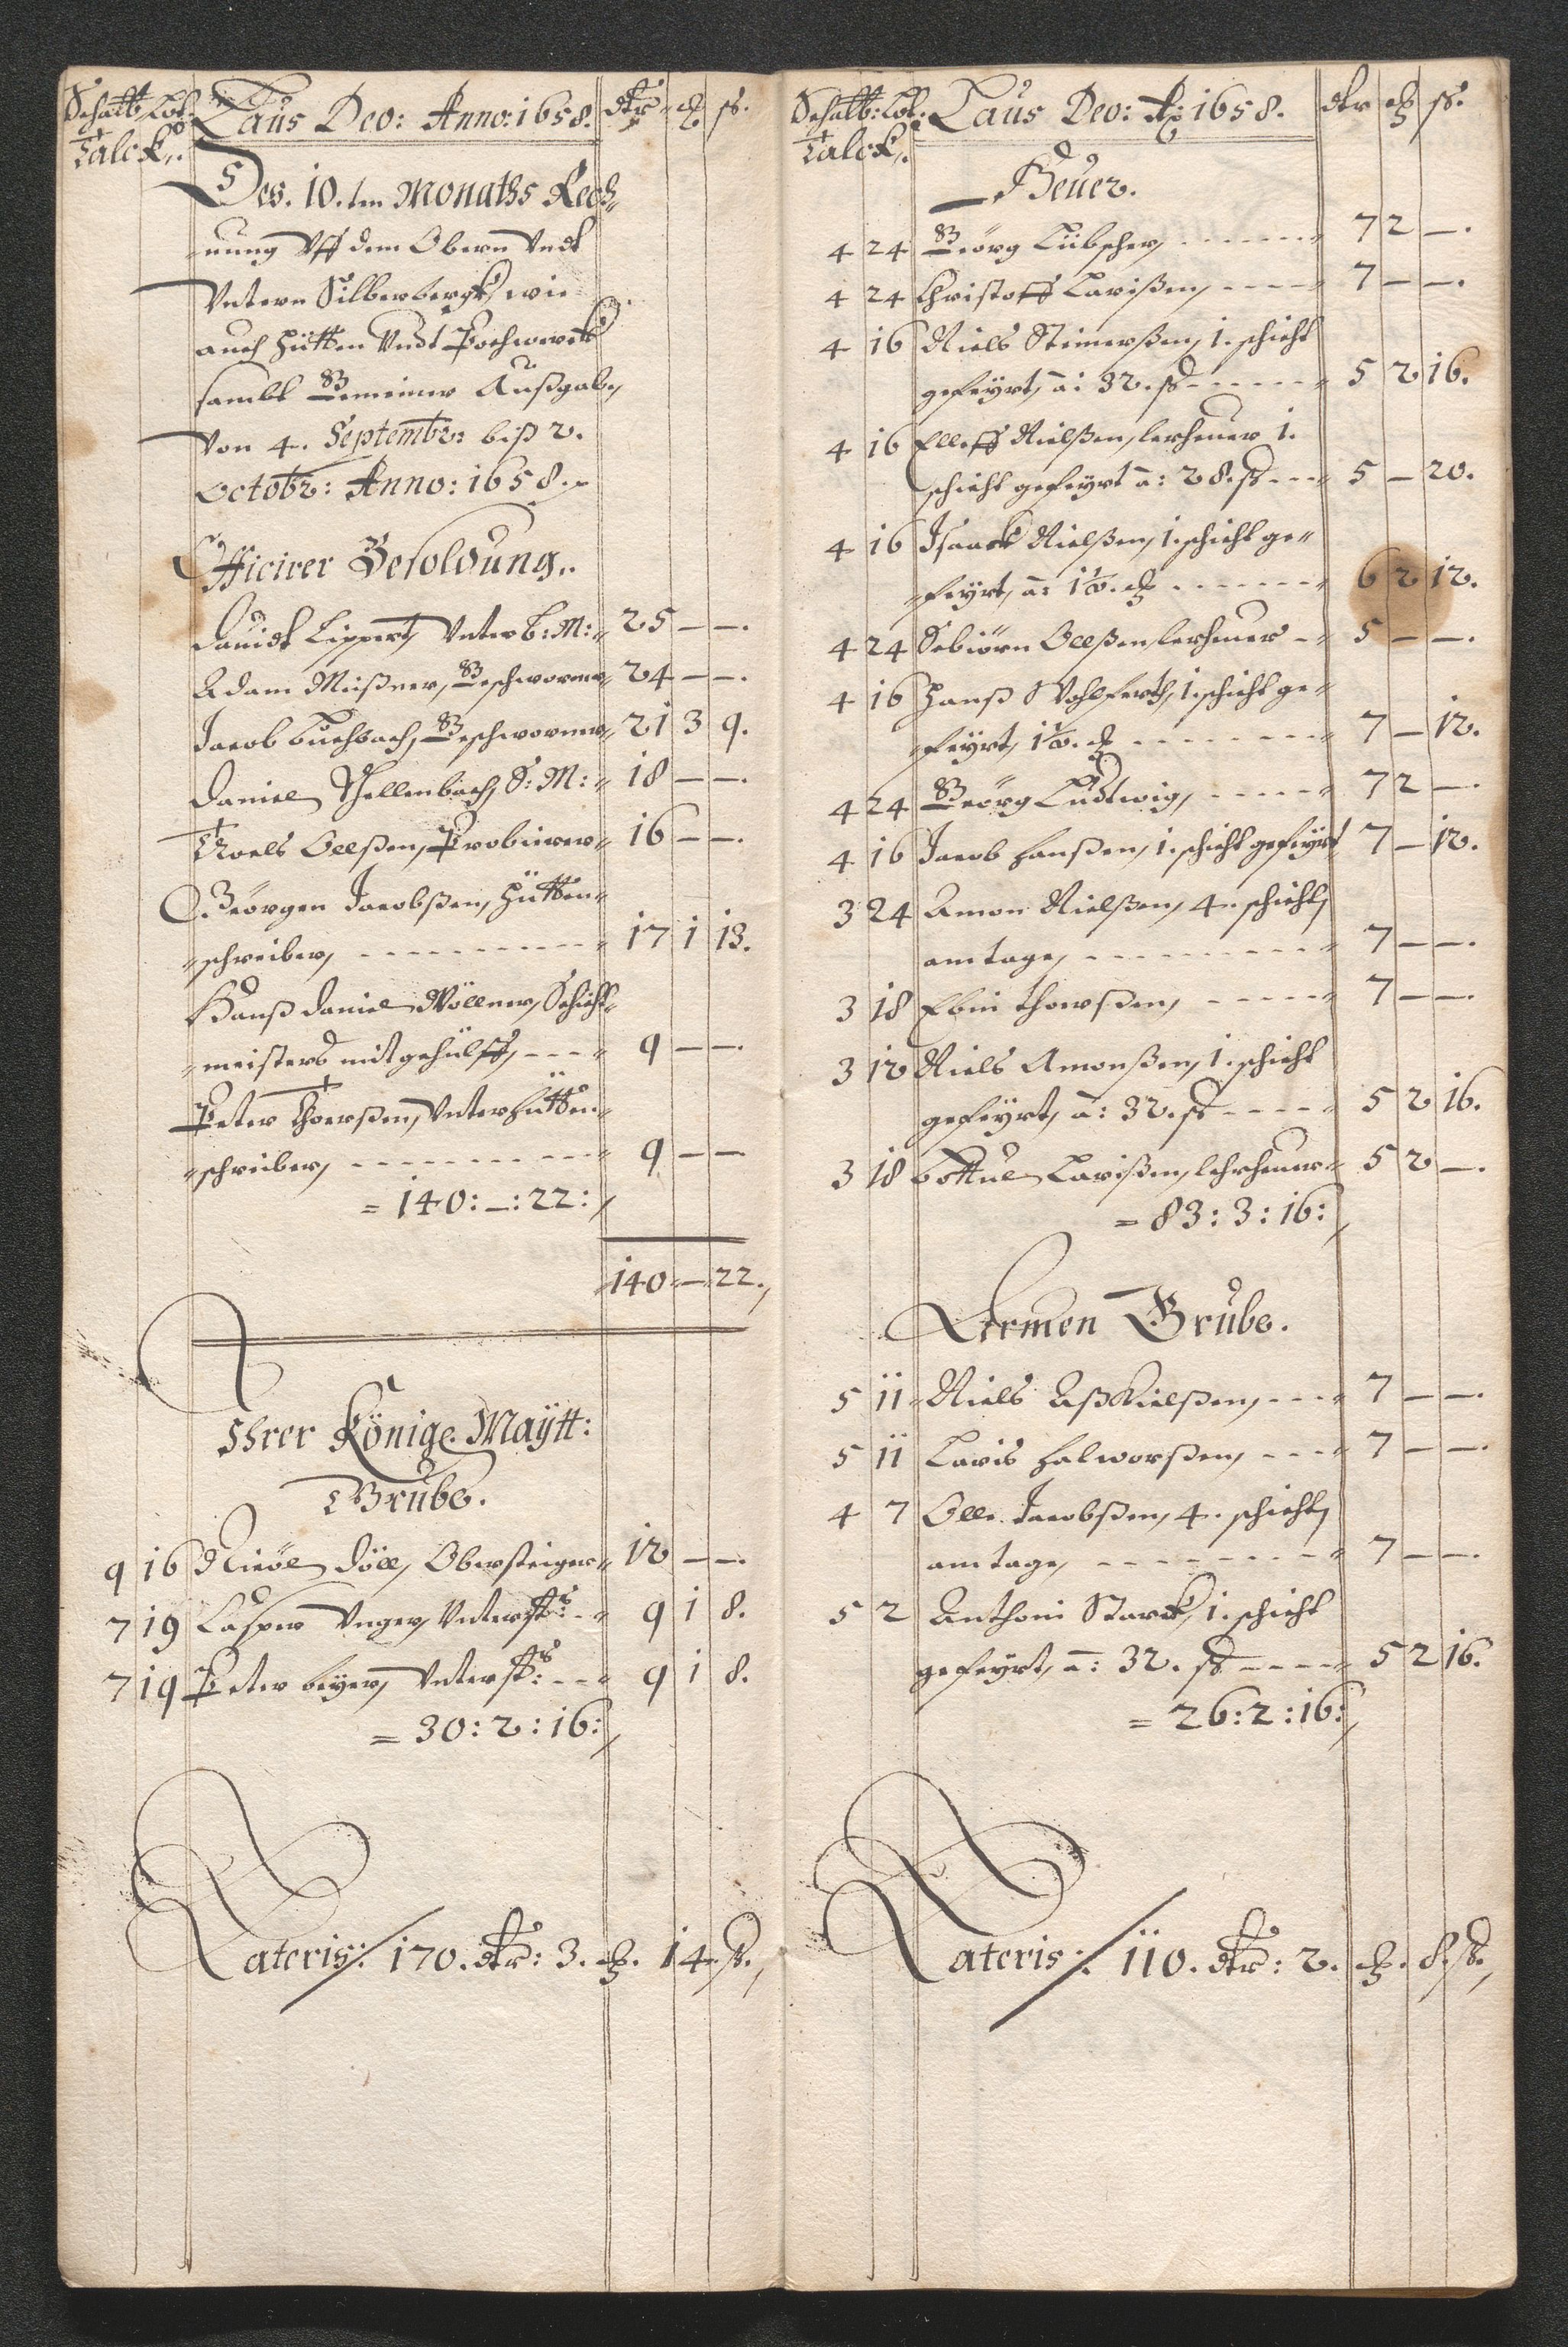 Schatt: Lot.
Talck,.
Laus Deo: Anno: 1658. dlr ß.
Des. 10.ten Monaths Rech„
„nung Vff dem Obern Vndt
Vntern Silberbergk, wie
auch Hütten Vndt Pochwerck
sambt Gemeiner Außgab,
Von 4. Septembr: biß 2.
Octobr: Anno: 1658.
Officirer Besoldung,.
Davidt Lippert, Vnter b: M: 25 — —.
Adam Meißner, Geschworner 24 — —.
Jacob Buchbach, Geschworner 21 3 9.
Daniel Schellenbach, S: M: 18 — —.
Troels Olßen, Probierer 16 — —.
Geörgen Jacobßen, Hütten„
„schreiber, 17 1 13.
Hanß Daniel Wöllner, Schicht„
„meisters mitgehülff, 9 — —.
Peter Thorßen, Vnterhütten„
„schreiber, 9 — —
= 140: —: 22:
140 — 22.
Ihrer Königl. Maÿtt:
Grube.
9 16 Nicöl Döll, Obersteiger 12 — —.
7 19 Casper Vnger, Vnterstr: 9 1 8.
7 19 Peter beÿer, Vnterstr: 9 1 8.
= 30: 2: 16:
Lateris: 170. dlr: 3. 14. ß.
Schatt: Lot.
Talck,.
Laus Deo: Ao 1658. dlr ß.
Heuer.
4 24 Geörg Lübscher, 7 2 —.
4 24 Christoff Larißen, 7 — —.
4 16 Niels Steinerßen, 1. schicht
gefeÿrt, a: 32. ß 5 2 16.
4 16 Elleff Nielßen, lerheuer 1.
schicht gefeÿrt a: 28. ß 5 — 20.
4 16 Isaack Nielßen, 1. schicht ge„
„feÿrt, a: 1½. 6 2 12.
4 24 Sebiörn Olßen, lerheuer 5 — —.
4 16 Hanß Wohlferth, 1. schicht ge„
„feÿrt, 1½. 7 — 12.
4 24 Geörg Ludtwig, 7 2 —
4 16 Jacob Hanßen, 1. schicht gefeÿrt 7 — 12.
3 24 Amon Nielßen, 4. schicht,
am tage, 7 — —.
3 18 Ebin Thorßen, 7 — —.
3 12 Niels Amonßen, 1. schicht
gefeÿrt, a: 32. ß 5 2 16.
3 18 bottul Larißen, lehrheuer 5 2 —.
= 83: 3: 16:
Armen Grube.
5 11 Niels Aßkielßen, 7 — —.
5 11 Laris Halworßen, 7 — —.
4 7 Olle Jacobßen, 4. schicht,
am tage, 7 — —.
5 2 Anthoni Starck, 1. schicht
gefeÿrt, a: 32. ß 5 2 16.
= 26: 2: 16:
Lateris: 110. dlr: 2. 8. ß.